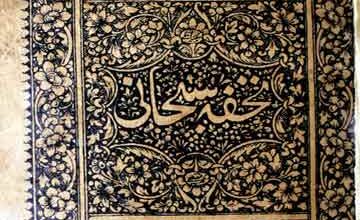 تحفه سبحانی